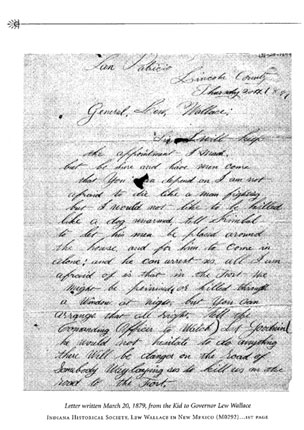 San Patricio
Lincoln County
Thursday 20th 1879
General. Lew. Wallace:
Sir. I will keep
the appointment I made.
but be Sure and have men come
that You can depend on I am not
afraid to die like a man fighting
but I would not like to be killed
like a dog unarmed. tell Kimbal
to let his men be placed around
the house, and for him to come in
alone; and he can arrest us. all I am
afraid of is that in the Fort We
might be poisoned or killed through
a Window at night. but You can
arrange that all right. Tell the
Commanding Officer to Watch) Let Goodwin(
he would not hesitate to do anything
there Will be danger on the road of
Somebody Waylaying us to kill us on the
road to the Fort.
Letter written March 20, 1879, from the Kid to Governor Lew Wallace
INDIANA HISTORICAL SOCIETY, LEW WALLACE IN NEW MEXICO (M0292)...1ST PAGE